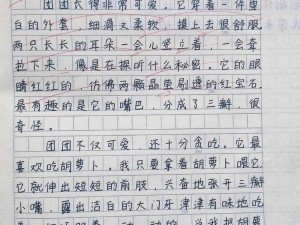 团团长得非常可爱。它穿着一件雪
白的外套，细滑又柔软，摸上去很舒服
两只长长的耳朵一会儿竖立着，一会耷
拉下来，像是在探听什么秘密。它的眼
睛红红的，仿佛两颗晶莹剔透的红宝石
最有趣的是它的嘴巴，分成了三瓣，很
奇怪。
团团不仅可爱，还十分贪吃。它最
喜欢吃胡萝卜。我只要拿着胡萝卜喂它
它就伸出短短的前肢，兴奋地张开三瓣
小嘴，露出洁白的大门牙津津有味地吃
我把胡